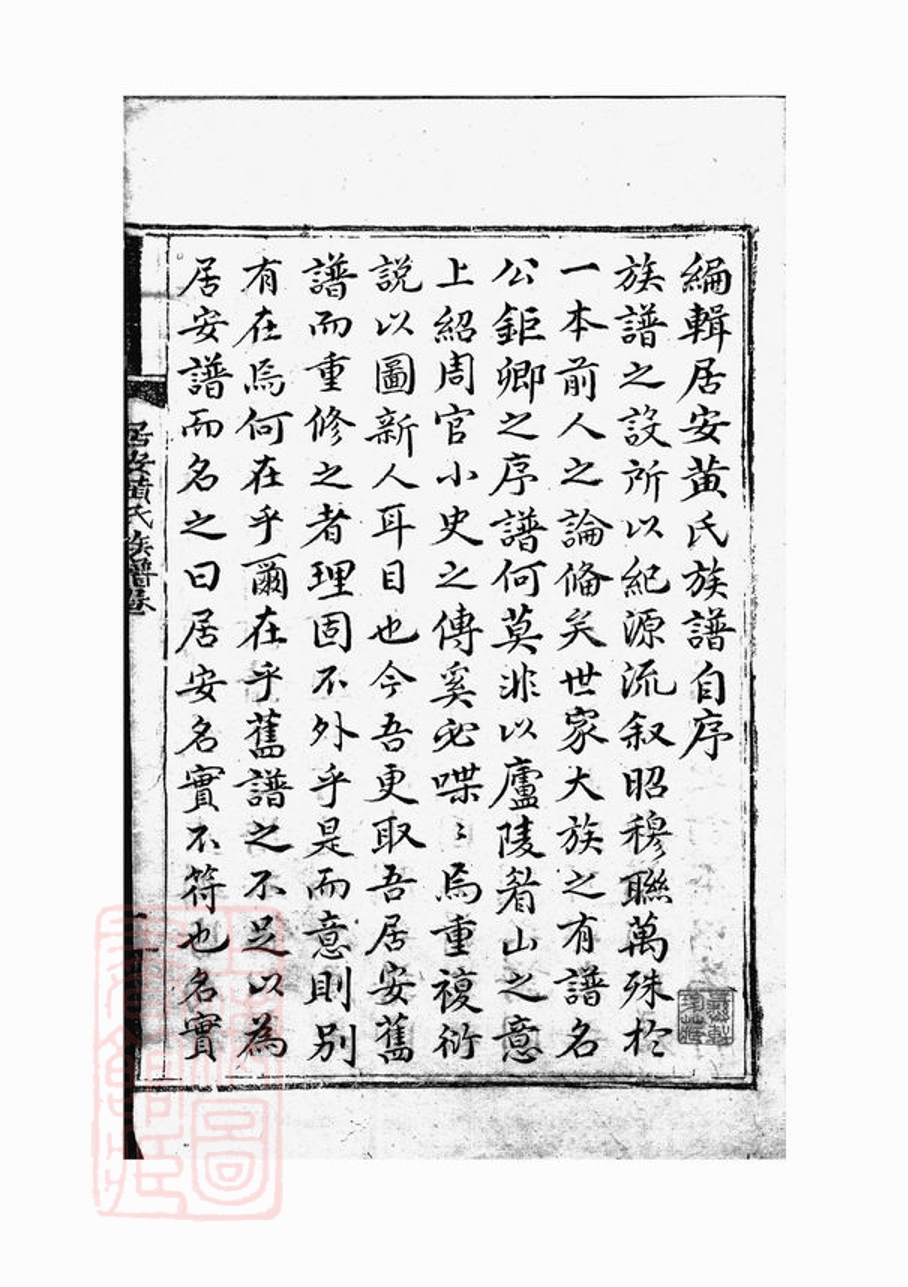 編輯居安黃氏族譜自序
族譜之設所以紀源流叙昭穆聯萬殊於
一本前人之論備矣世家大族之有譜名
公鉅卿之序譜何莫非以廬陵眷山之意
上紹周官小史之傳奚必喋〻焉重複衍
說以圖新人耳目也今吾更取吾居安舊
譜而重修之者理固不外乎是而意則別
有在焉何在乎爾在乎舊譜之不足以為
居安譜而名之曰居安名實不符也名實
居安黃氏族譜卷